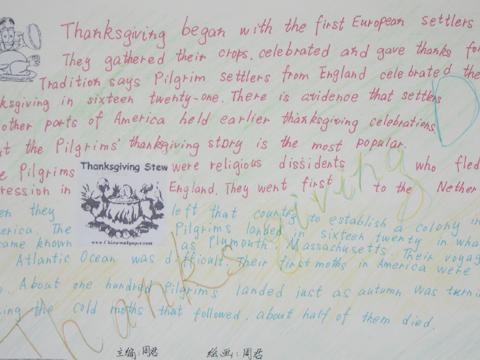 Thanksgiving began with the first European settlers
They gathered their crops, celebrated and gave thanks for
Tradition says Pilgrim settlers from England celebrated the
ksgiving in sixteen twenty-one. There is avidence that settlers
other ports of America held earlier thanksgiving celebrations
t the Pilgrims' thanksgiving story is the most popular.
e Pilgrims were religious dissidents who fled
ression in England. They went first to the Nether
en they left that country to establish a colony in
erica. The Pilgrims landed in sixteen twenty in what
came known as Plymouth, Massachusetts. Their voyag
Atlantic Ocean was difficult. Their first moths in America were
. About one hundred Pilgrims landed just as autumn was turni
ing the cold moths that followed, about half of them died.
Thanksgiving Stew
www.Chinawallpaper.com
Thanksgiving
主编:周君 绘画:周君